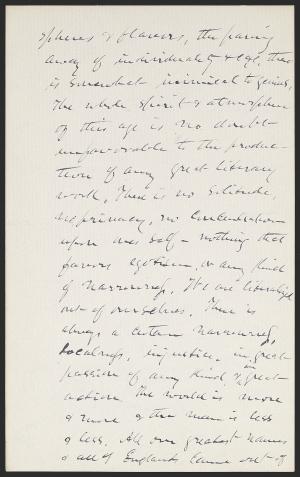 spheres & flavors, the paring
away of individuality & ego, this
is somewhat inimical to genius.
The whole spirit & atmosphere
of this age is no doubt
unfavorable to the produc-
tion of any great literary
work. There is no solitude,
no privacy, no concentration
upon ones self - nothing that
favors egotism, or any kind
of narrowness. We are liberalized
out of ourselves. There is
always a certain narrowness,
localness, injustice, in great
passion of any kind, in great
action. The world is more
& more & the man is less
& less. All our greatest names
& all of Englands came out of